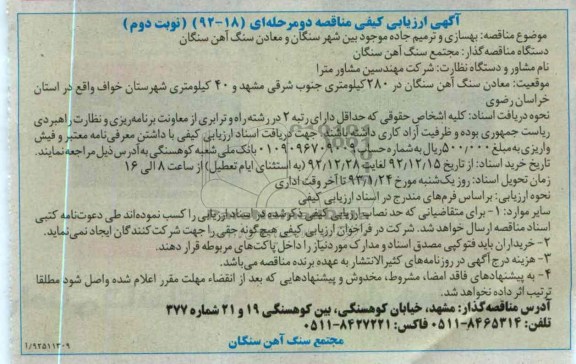 آگهی ارزیابی کیفی مناقصه دومرحله‌ای (۱۸-۹۲) (نوبت دوم)
موضوع مناقصه: بهسازی و ترمیم جاده موجود بین شهر سنگان و معادن سنگ آهن سنگان
دستگاه مناقصه‌گذار: مجتمع سنگ آهن سنگان
نام مشاور و دستگاه نظارت: شرکت مهندسین مشاور مترا
موقعیت: معادن سنگ آهن سنگان در ۲۸۰ کیلومتری جنوب شرقی مشهد و ۴۰ کیلومتری شهرستان خواف واقع در استان
خراسان رضوی
نحوه دریافت اسناد: کلیه اشخاص حقوقی که حداقل دارای رتبه ۲ در رشته راه و ترابری از معاونت برنامه‌ریزی و نظارت راهبردی
ریاست جمهوری بوده و ظرفیت آزاد کاری داشته باشند. جهت دریافت اسناد ارزیابی کیفی با داشتن معرفی‌نامه معتبر و فیش
واریزی به مبلغ ۵۰۰/۰۰۰ ریال به شماره حساب ۰۱۰۹۰۹۶۷۰۹۰۰۹ بانک ملی شعبه کوهسنگی به آدرس ذیل مراجعه نمایند.
تاریخ خرید اسناد: از تاریخ ۹۲/۱۲/۱۵ لغایت ۹۲/۱۲/۲۸ (به استثنای ایام تعطیل) از ساعت ۸ الی ۱۶
زمان تحویل اسناد: روز یک‌شنبه مورخ ۹۳/۱/۲۴ تا آخر وقت اداری
نحوه ارزیابی: براساس فرم‌های مندرج در اسناد ارزیابی کیفی
سایر موارد: ۱- برای متقاضیانی که حد نصاب ارزیابی کیفی ذکر شده در اسناد ارزیابی را کسب نموده‌اند طی دعوت‌نامه کتبی
اسناد مناقصه ارسال خواهد شد. شرکت در فراخوان ارزیابی کیفی هیچ‌گونه حقی را جهت شرکت‌کنندگان ایجاد نمی‌نماید.
۲- خریداران باید فتوکپی مصدق اسناد و مدارک موردنیاز را داخل پاکت‌های مربوطه قرار دهند.
۳- هزینه درج آگهی در روزنامه‌های کثیرالانتشار به عهده برنده مناقصه می‌باشد.
۴- به پیشنهادهای فاقد امضا، مشروط، مخدوش و پیشنهادهایی که بعد از انقضاء مهلت مقرر اعلام شده واصل شود مطلقا
ترتیب اثر داده نخواهد شد.
آدرس مناقصه‌گذار: مشهد، خیابان کوهسنگی، بین کوهسنگی ۱۹ و ۲۱ شماره ۳۷۷
تلفن: ۸۴۶۵۳۱۴-۰۵۱۱ فاکس: ۸۴۲۷۲۲۱-۰۵۱۱
مجتمع سنگ آهن سنگان
۹۲۵۱۱۳۰۹/آ